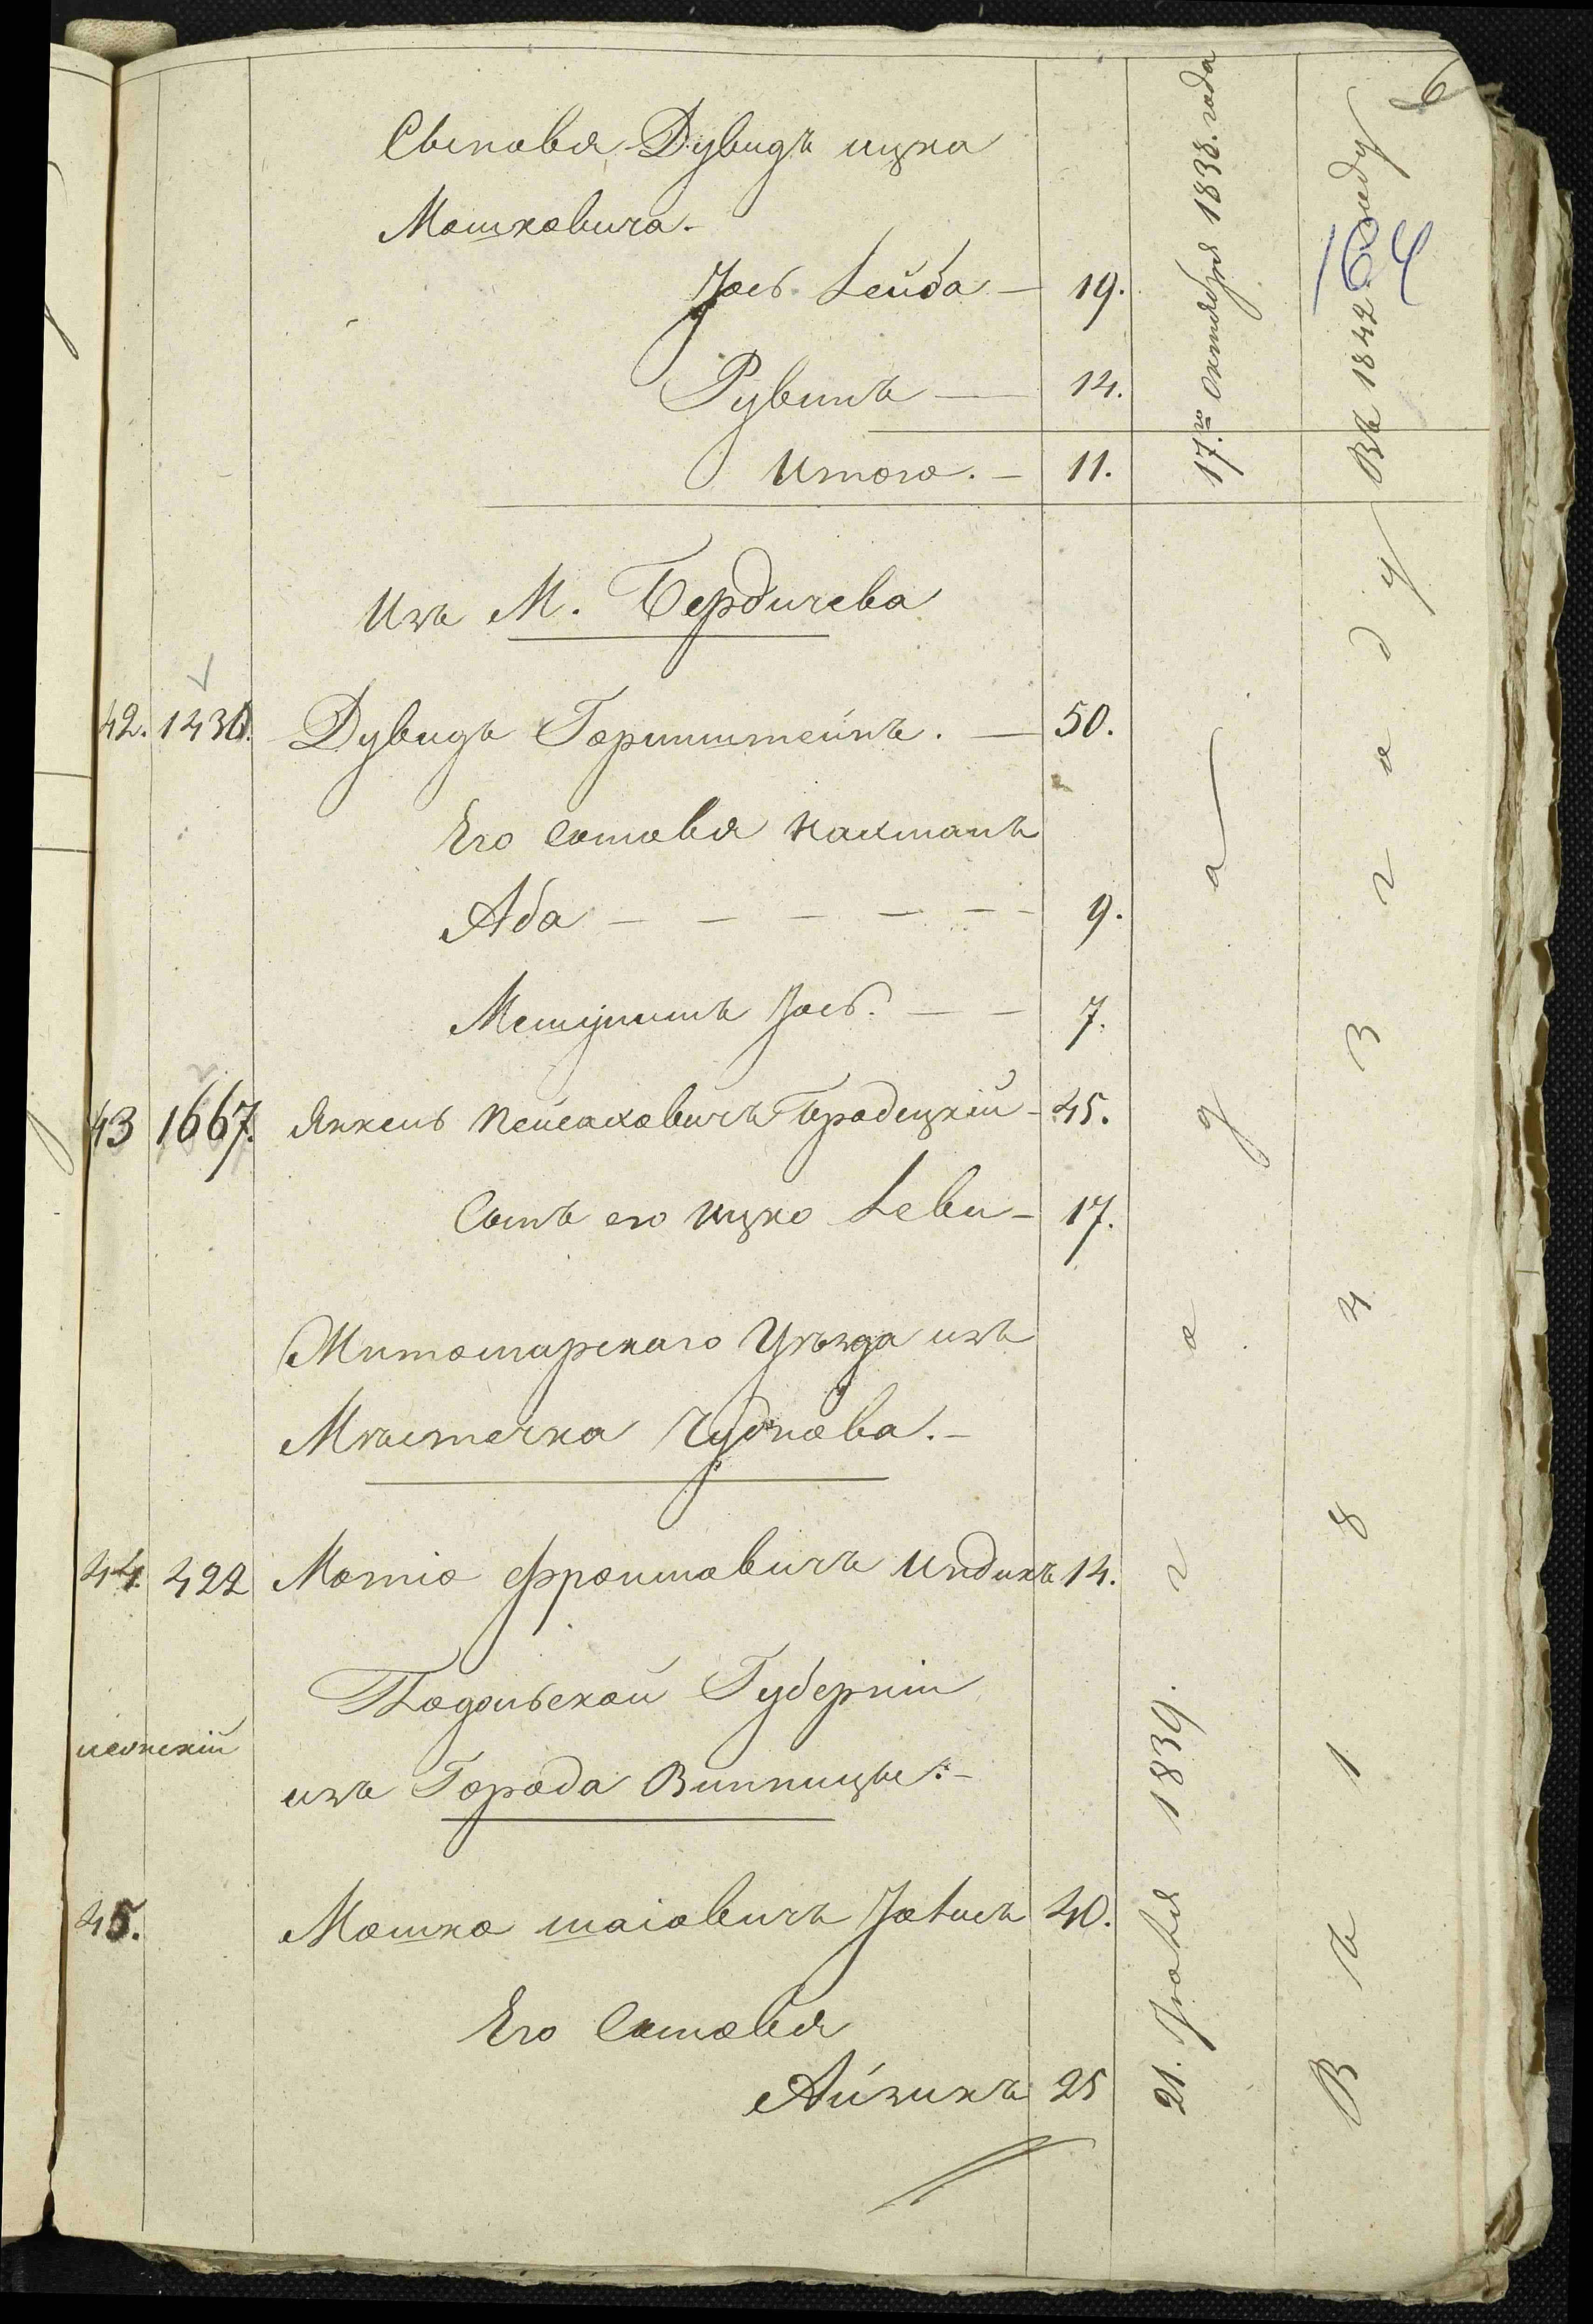 6
164
Сыновья Дувидъ ицка
Мошковича.
Іось Лейба — 19.
Рувинъ — 14.
Итого. — 11.
17.го Октября 1838. года
Въ 1842 году
Изъ М. Бердичева
42. 1430. Дувидъ Горинштейнъ. — 50.
Его Сыновья
Аба — — — — — — 9.
Іось. — — 7.
43 1667. Янкель Пейсаховичъ Бродецкій — 45.
Сынъ его ицко Леви — 17.
Житомирскаго Уѣзда изъ
Мѣстечка Чуднова. —
44. 422 Индикъ 14.
Подольской Губерніи
изъ Города Винницы: —
45. Мошко шаіовичъ 40.
Его Сыновья
Айзикъ 25
21. 1839. года
Въ 1843 году